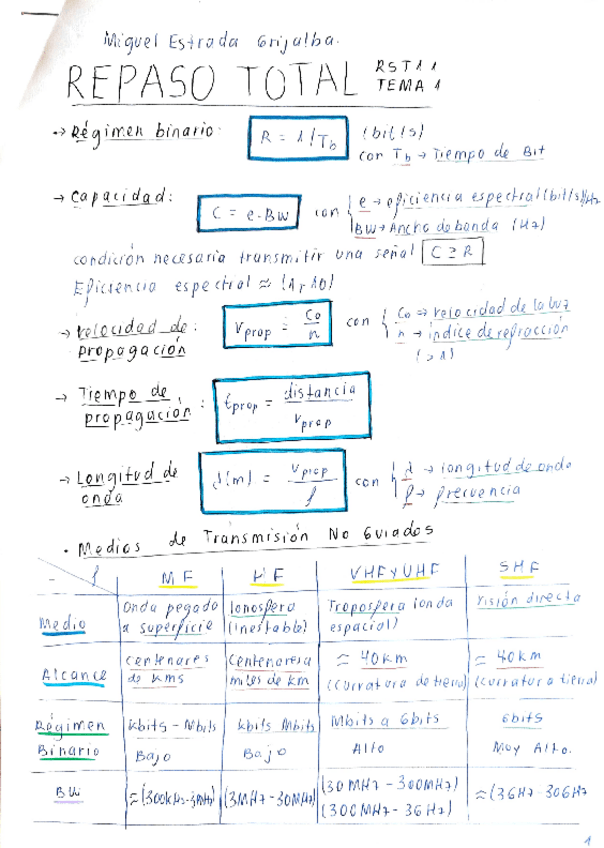 Miguel Estrada Grijalba.
REPASO TOTAL RSTI 1
TEMA 1
→ Régimen binario: R = 1/Tb (bit/s)
con Tb → Tiempo de Bit
→ Capacidad: C = e·BW con { e → eficiencia espectral (bit/s)/Hz
BW → Ancho de banda (Hz)
condición necesaria transmitir una señal C ≥ R
Eficiencia espectral ≈ (1, 10)
→ Velocidad de propagación: Vprop = Co/n con { Co → velocidad de la luz
n → índice de refracción
(>1)
→ Tiempo de propagación: tprop = distancia/vprop
→ Longitud de onda λ(m) = vprop/f con { λ → longitud de onda
f → frecuencia
· Medios de Transmisión No Guiados
f MF HF VHF y UHF SHF
Medio Onda pegada a superficie Ionosfera (inestable) Troposfera (onda espacial) Visión directa
Alcance Centenares de kms Centenares a miles de km ≈ 40km (curvatura de tierra) ≈ 40km (curvatura tierra)
Régimen Binario kbits - Mbits Bajo kbits Mbits Bajo Mbits a Gbits Alto Gbits Muy Alto.
BW ≈ (300kHz-3MHz) (3MHz-30MHz) (30MHz-300MHz) (300MHz-3GHz) ≈ (3GHz-30GHz
1